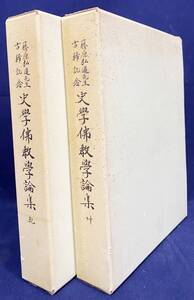 藤原弘道先生
古稀記念
史學佛教學論集
乾
藤原弘道先生
古稀記念
史學佛教學論集
坤